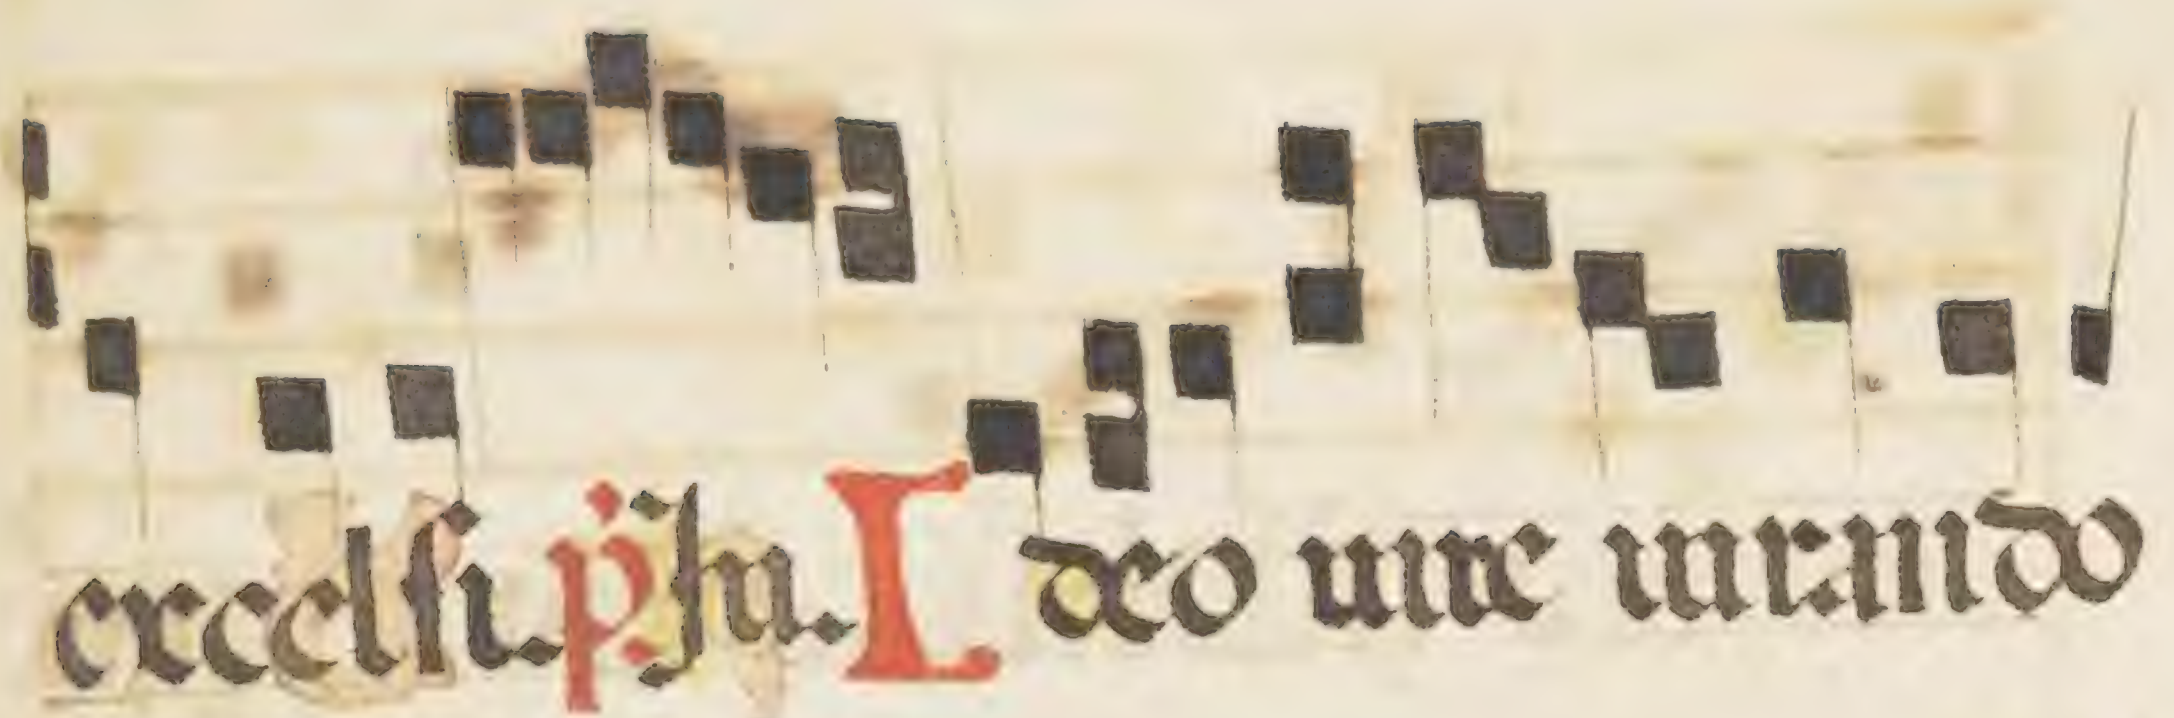 excelsi. p̄. Jn. Ideo iure iurando